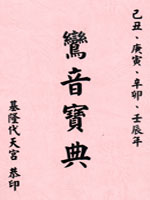 己丑、庚寅、辛卯、壬辰年
鸞音寶典
基隆代天宮 恭印